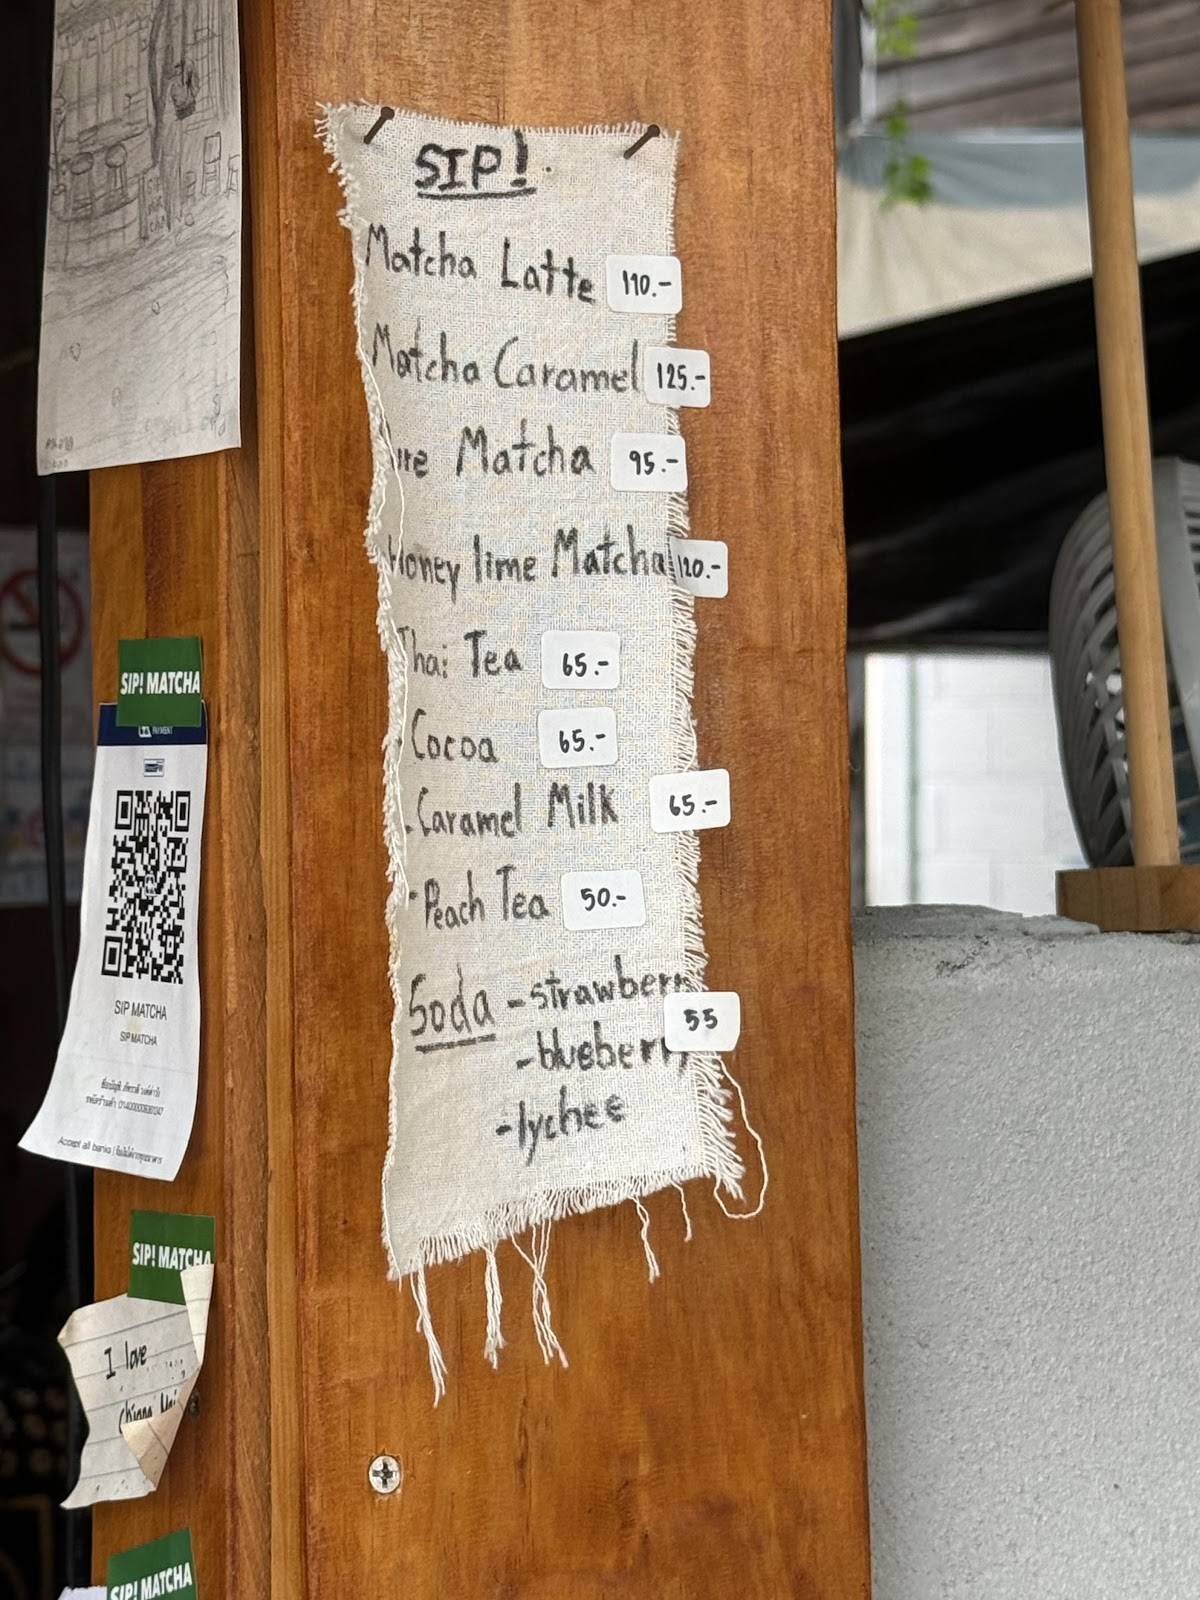 SIP!
Matcha Latte 110.-
Matcha Caramel 125.-
ure Matcha 95.-
Honey lime Matcha 120.-
Thai Tea 65.-
Cocoa 65.-
Caramel Milk 65.-
Peach Tea 50.-
Soda -strawberry 55
-blueberry
-lychee
SIP! MATCHA
PAYMENT
SIP MATCHA
SIP MATCHA
Accept all banks |
SIP! MATCHA
I love
chiang Mai
SIP! MATCHA